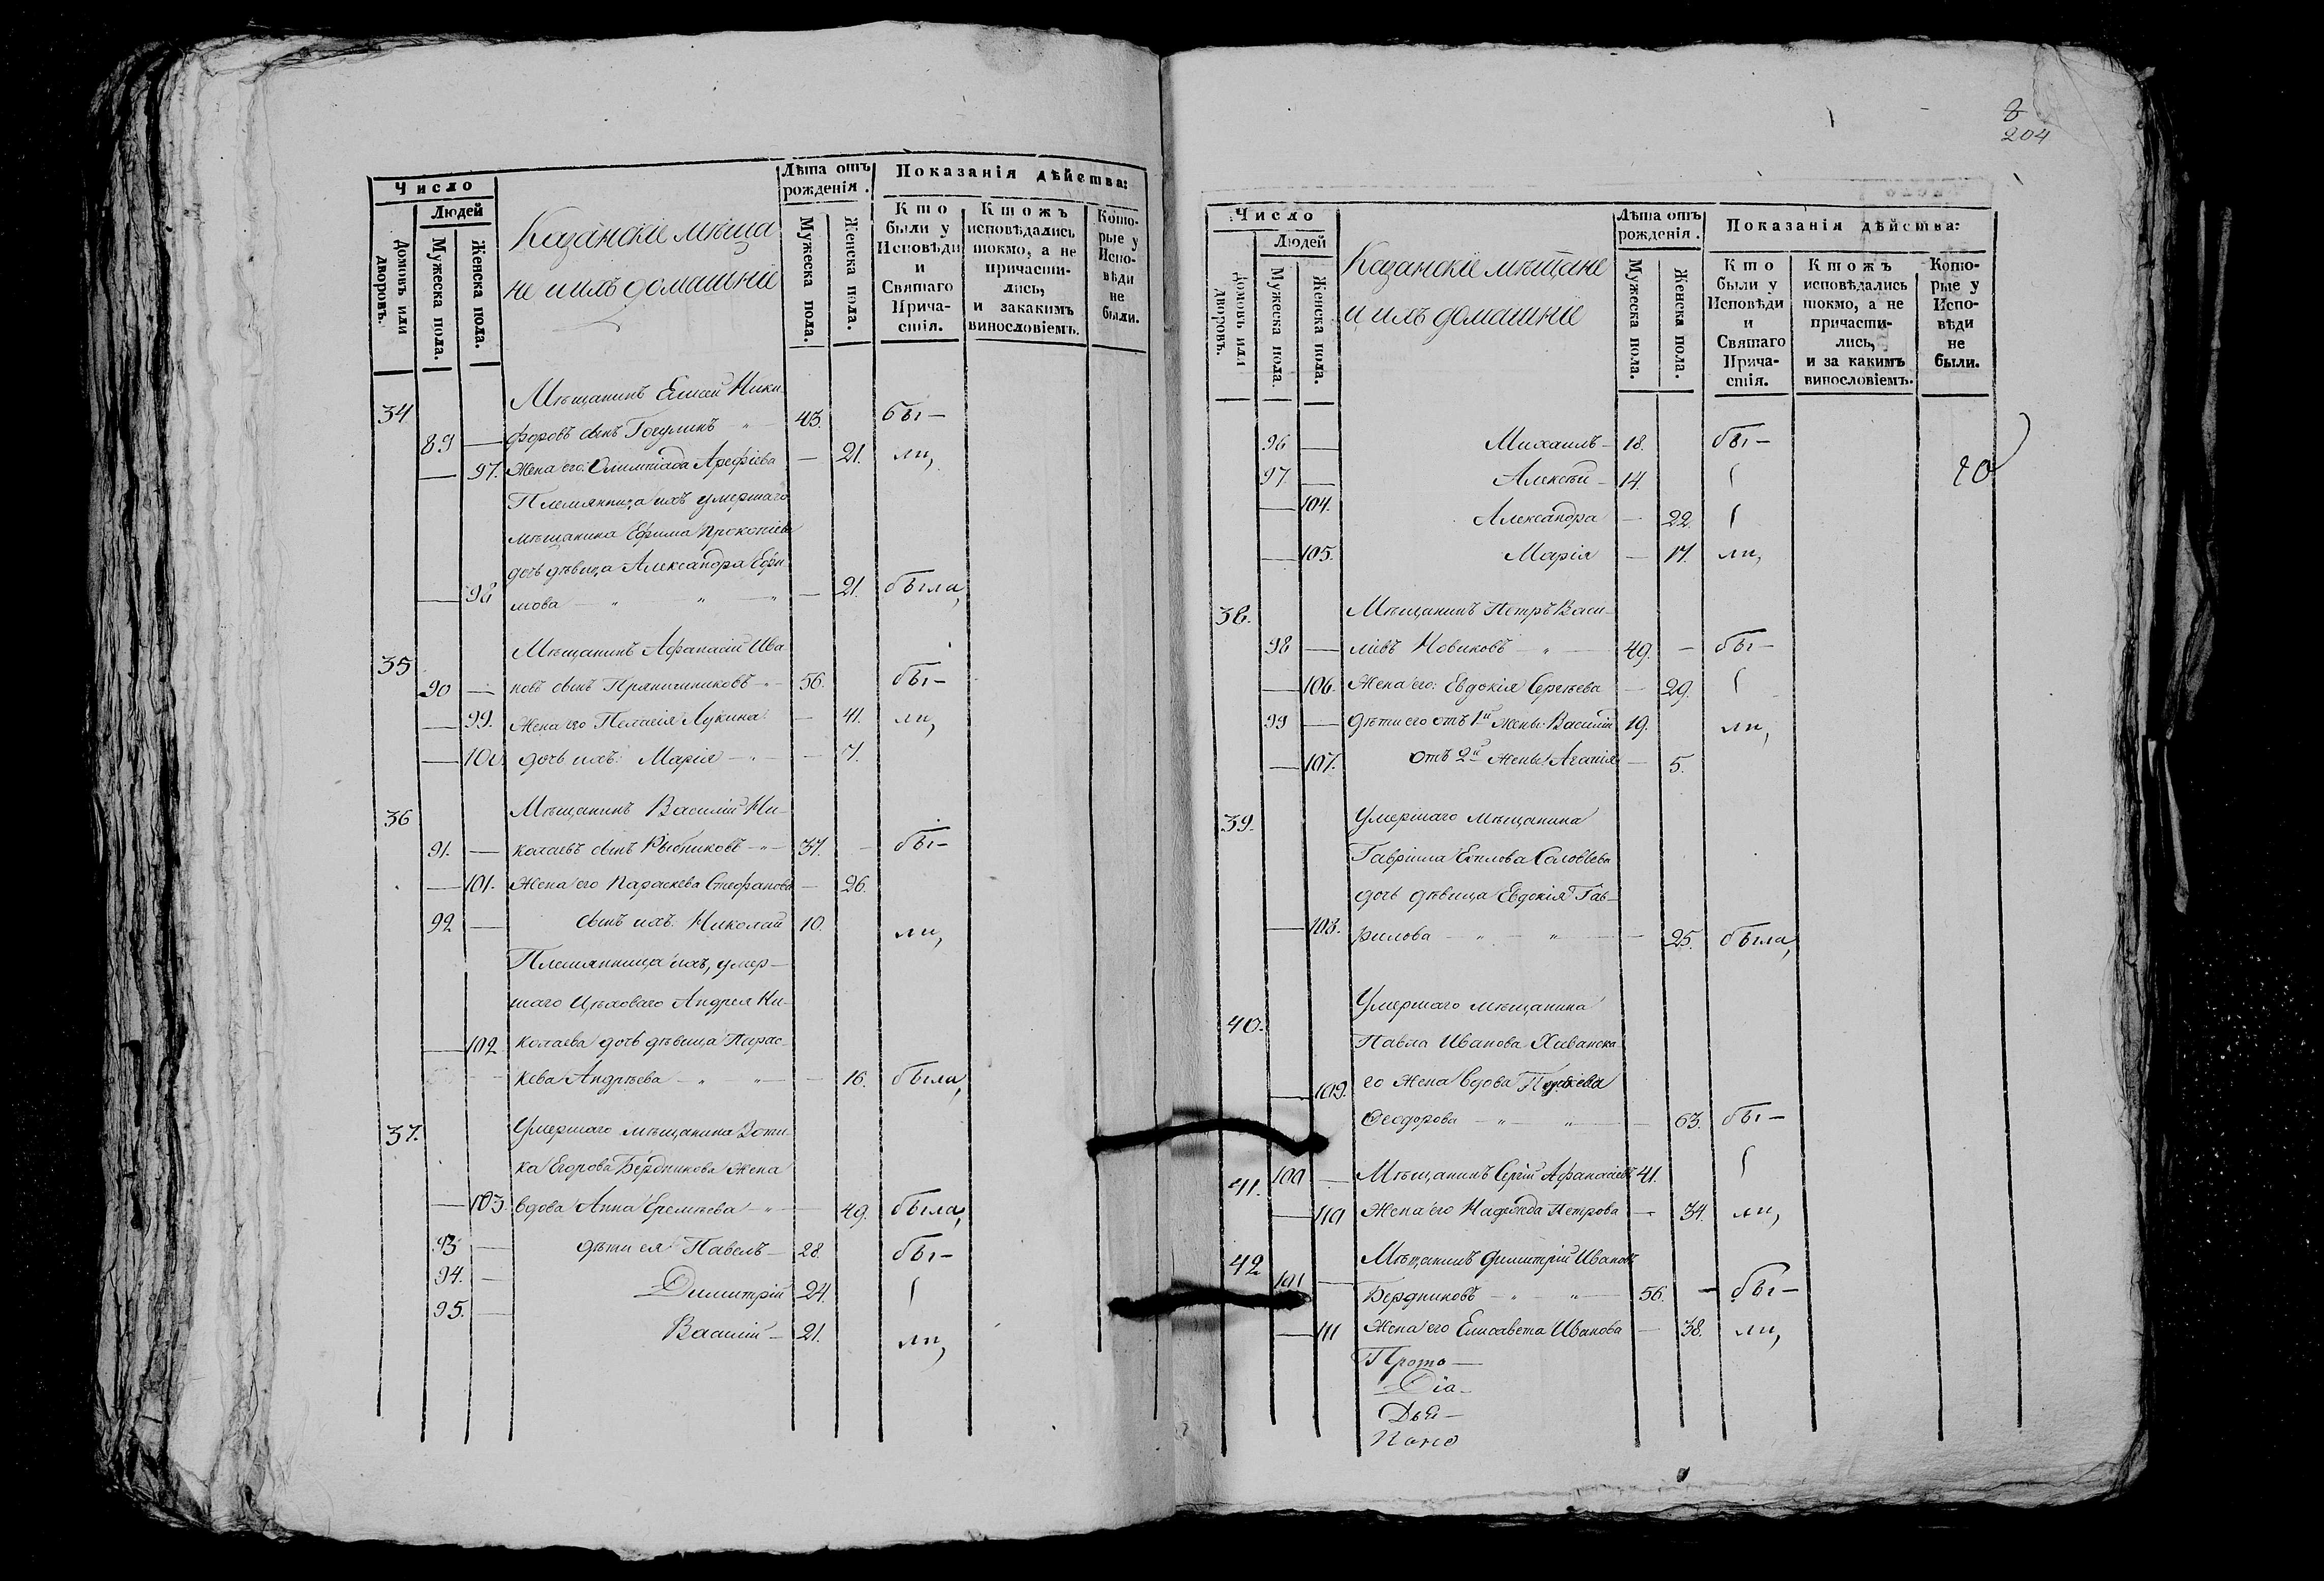 Число
Людей
Домовъ или дворовъ.
Мужеска пола.
Женска пола.
Казанскіе мѣща
не и ихъ домашніе
Лѣта отъ
рожденія.
Мужеска пола.
Женска пола.
Показанія дѣйства:
Кто
были у
Исповѣди
и
Святаго
Прича-
стія.
Ктожъ
исповѣдались
токмо, а не
причасти-
лись,
и закакимъ
винословіемъ.
Кото-
рые у
Испо-
вѣди
не
были.
34 Мѣщанинъ Елисей Ники
89 — форовъ сынъ 43. бы —
— 97. Жена его: Олимпіада Арефіева — 21. ли,
Племянница ихъ умершаго
мѣщанина Ефима Прокопіева
дочь дѣвица Александра Ефи
— 98 мова — „ „ — „ — 21. была,
35 Мѣщанинъ Афанасій Ива
90 — новъ сынъ Пряничниковъ — „ — 56. бы —
— 99. Жена его Пелагія Лукина — 41. ли,
— 100. дочь ихъ: Марія — „ — — 7.
36 Мѣщанинъ Василій Ни-
91. — колаевъ сынъ Рыбниковъ — „ — 37. — бы —
— 101. Жена его Параскева Стефанова — 26.
92 — сынъ ихъ: Николай 10. ли,
Племянница ихъ, умер —
шаго Цѣховаго Андрея Ни-
— 102. колаева дочь дѣвица Парас-
кева Андрѣева — „ „ — — 16. была,
37. Умершаго мѣщанина Воти
ка Егорова Бердникова жена
— 103. вдова Анна Еремѣева — „ — 49. была,
93 — дѣти ея Павелъ — 28. бы —
94. — Димитрій 24.
95. — Василій — 21. ли,
8
204
Число
Людей
Домовъ или дворовъ.
Мужеска пола.
Женска пола.
Казанскіе мѣщане
и ихъ домашніе
Лѣта отъ
рожденія.
Мужеска пола.
Женска пола.
Показанія дѣйства:
Кто
были у
Исповѣди
и
Святаго
Прича-
стія.
Ктожъ
исповѣдались
токмо, а не
причасти-
лись,
и за какимъ
винословіемъ.
Кото-
рые у
Испо-
вѣди
не
были.
96 — Михаилъ — 18. бы —
97. — Алексѣй — 14.
— 104. Александра — 22.
— 105. Марія — 17. ли,
38. Мѣщанинъ Петръ Васи —
98 — ліевъ Новиковъ — „ — 49. — бы —
— 106. Жена его: Евдокія Сергѣева — 29.
99 — дѣти его отъ 1й жены: Василій 19. ли,
— 107. отъ 2й жены: Агапія — 5.
39. Умершаго мѣщанина
Гавріила Соловьева
дочь дѣвица Евдокія Гав —
— 108. рилова — „ — „ — — 25. была,
40. Умершаго мѣщанина
Павла Иванова Хиванска
— 109. го жена вдова
Ѳеодорова — „ — „ — — 63. бы —
41. 100 — Мѣщанинъ Сергій Афанасіевъ 41.
— 110 Жена его Надежда Петрова — 34. ли,
42 Мѣщанинъ Димитрій Ивановъ
101 — Бердниковъ — „ „ — 56. — бы —
— 111 Жена его Елисавета Иванова — 38. ли,
Прото —
Діа —
Поно